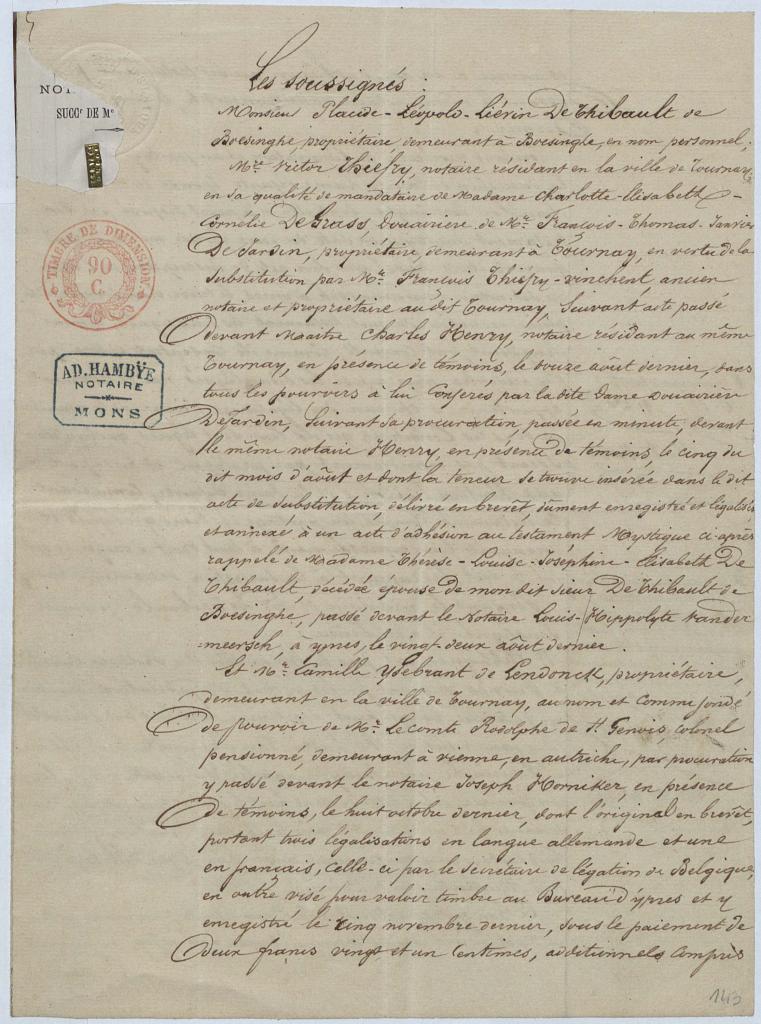 NOT
SUCCr DE Me
TIMBRE DE DIMENSION
90
C.
AD. HAMBŸE
NOTAIRE
MONS
Les soussignés :
Monsieur Placide-Léopold-Liévin De Thibault de
Boesinghe, propriétaire, demeurant à Boesinghe, en nom personnel,
Mre Victor Thiefry, notaire résidant en la ville de Tournay,
en sa qualité de mandataire de Madame Charlotte-Elisabeth-
Cornélie De Grass, Douairière de Mr François-Thomas-Janvier
De Jardin, propriétaire, demeurant à Tournay, en vertu de la
substitution par Mr François Thiefry-Vinchent, ancien
notaire et propriétaire au dit Tournay, suivant acte passé
devant Maitre Charles Henry, notaire résidant au même
Tournay, en présence de témoins, le douze août dernier, dans
tous les pouvoirs à lui Conferés par la dite Dame Douairière
DeJardin, suivant sa procuration, passée en minute, devant
le même notaire Henry, en présence de témoins, le cinq du
dit mois d'août et dont la teneur se trouve insérée dans le dit
acte de substitution, délivré en brevêt, dûment enregistré et légalisé
et annexé à un acte d'adhésion au testament Mystique ci après
rappelé de Madame Thérèse-Louise-Joséphine-Elisabeth De
Thibault, décédée épouse de mon dit sieur De Thibault de
Boesinghe, passé devant le Notaire Louis-Hippolyte Vander
=meersch, à ypres, le vingt-deux août dernier.
Et Mr Camille Ysebrant de Lendonck, propriétaire,
demeurant en la ville de Tournay, au nom et comme fondé
de pouvoir de Mr Le comte Rodolphe de St Genois, colonel
pensionné, demeurant à vienne, en autriche, par procuration
y passé devant le notaire Joseph Horniker, en présence
de témoins, le huit octobre dernier, dont l'original en brevêt,
portant trois légalisations en langue allemande et une
en français, celle-ci par le secrétaire de légation de Belgique,
en outre visé pour valoir timbre au Bureau d'ypres et y
enregistré le Cinq novembre dernier, sous le paiement de
deux francs vingt et un Centimes, additionnels compris
143